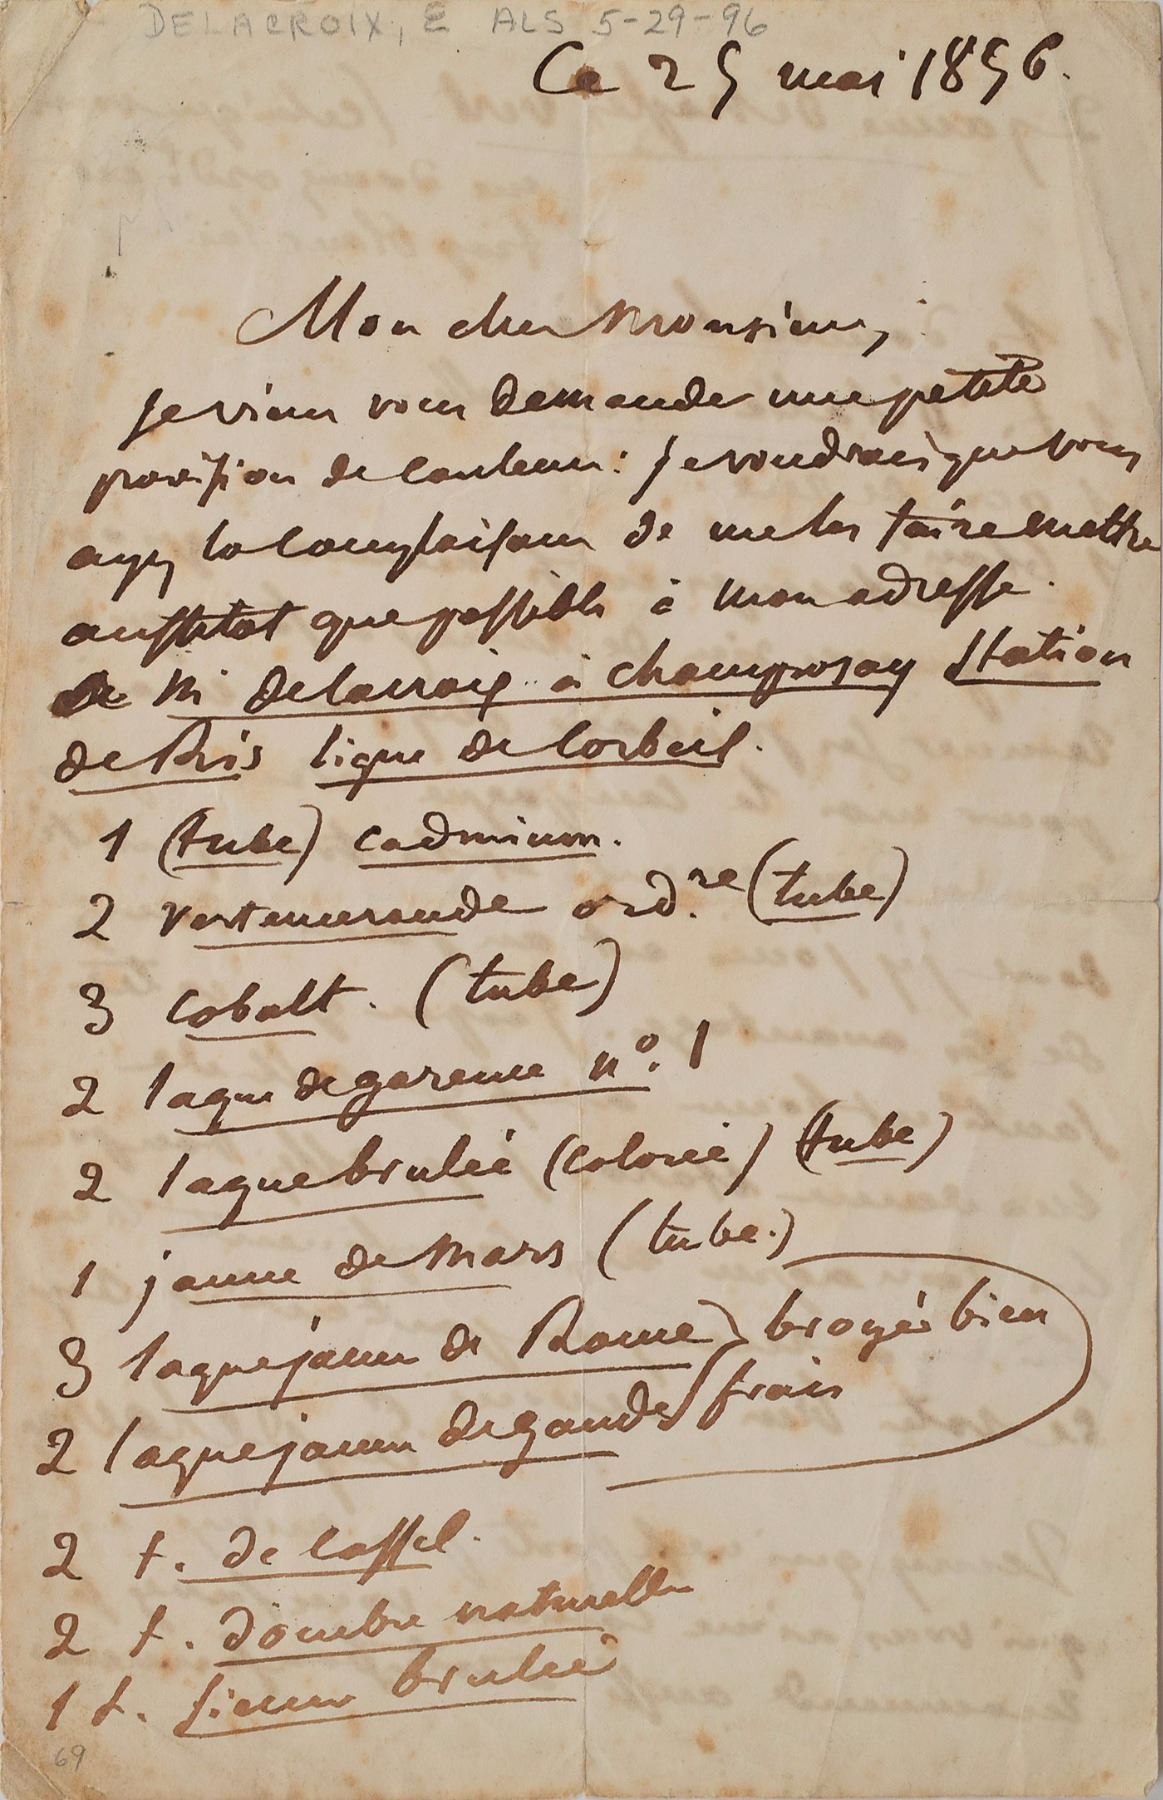 DELACROIX, E ALS 5-29-96
Ce 29 mai 1856.
Mon cher Monsieur,
je viens vous demander une petite
provision de couleurs: je voudrais que vous
ayez la complaisance de me les faire mettre
aussitot que possible à mon adresse
de Mr Delacroix à champrosay Station
de Ris ligne de Corbeil.
1 (tube) cadmium.
2 vert emeraude ord.re (tube)
3 cobalt. (tube)
2 laque de garence no. 1
2 laque brulée (colorié) (tube)
1 jaune de Mars (tube.)
3 laque jaune de Rome) broyée bien
2 laque jaune de gaude) frais
2 t. de Cassel.
2 t. d'ombre naturelle
1 t. Sienne brulée
69